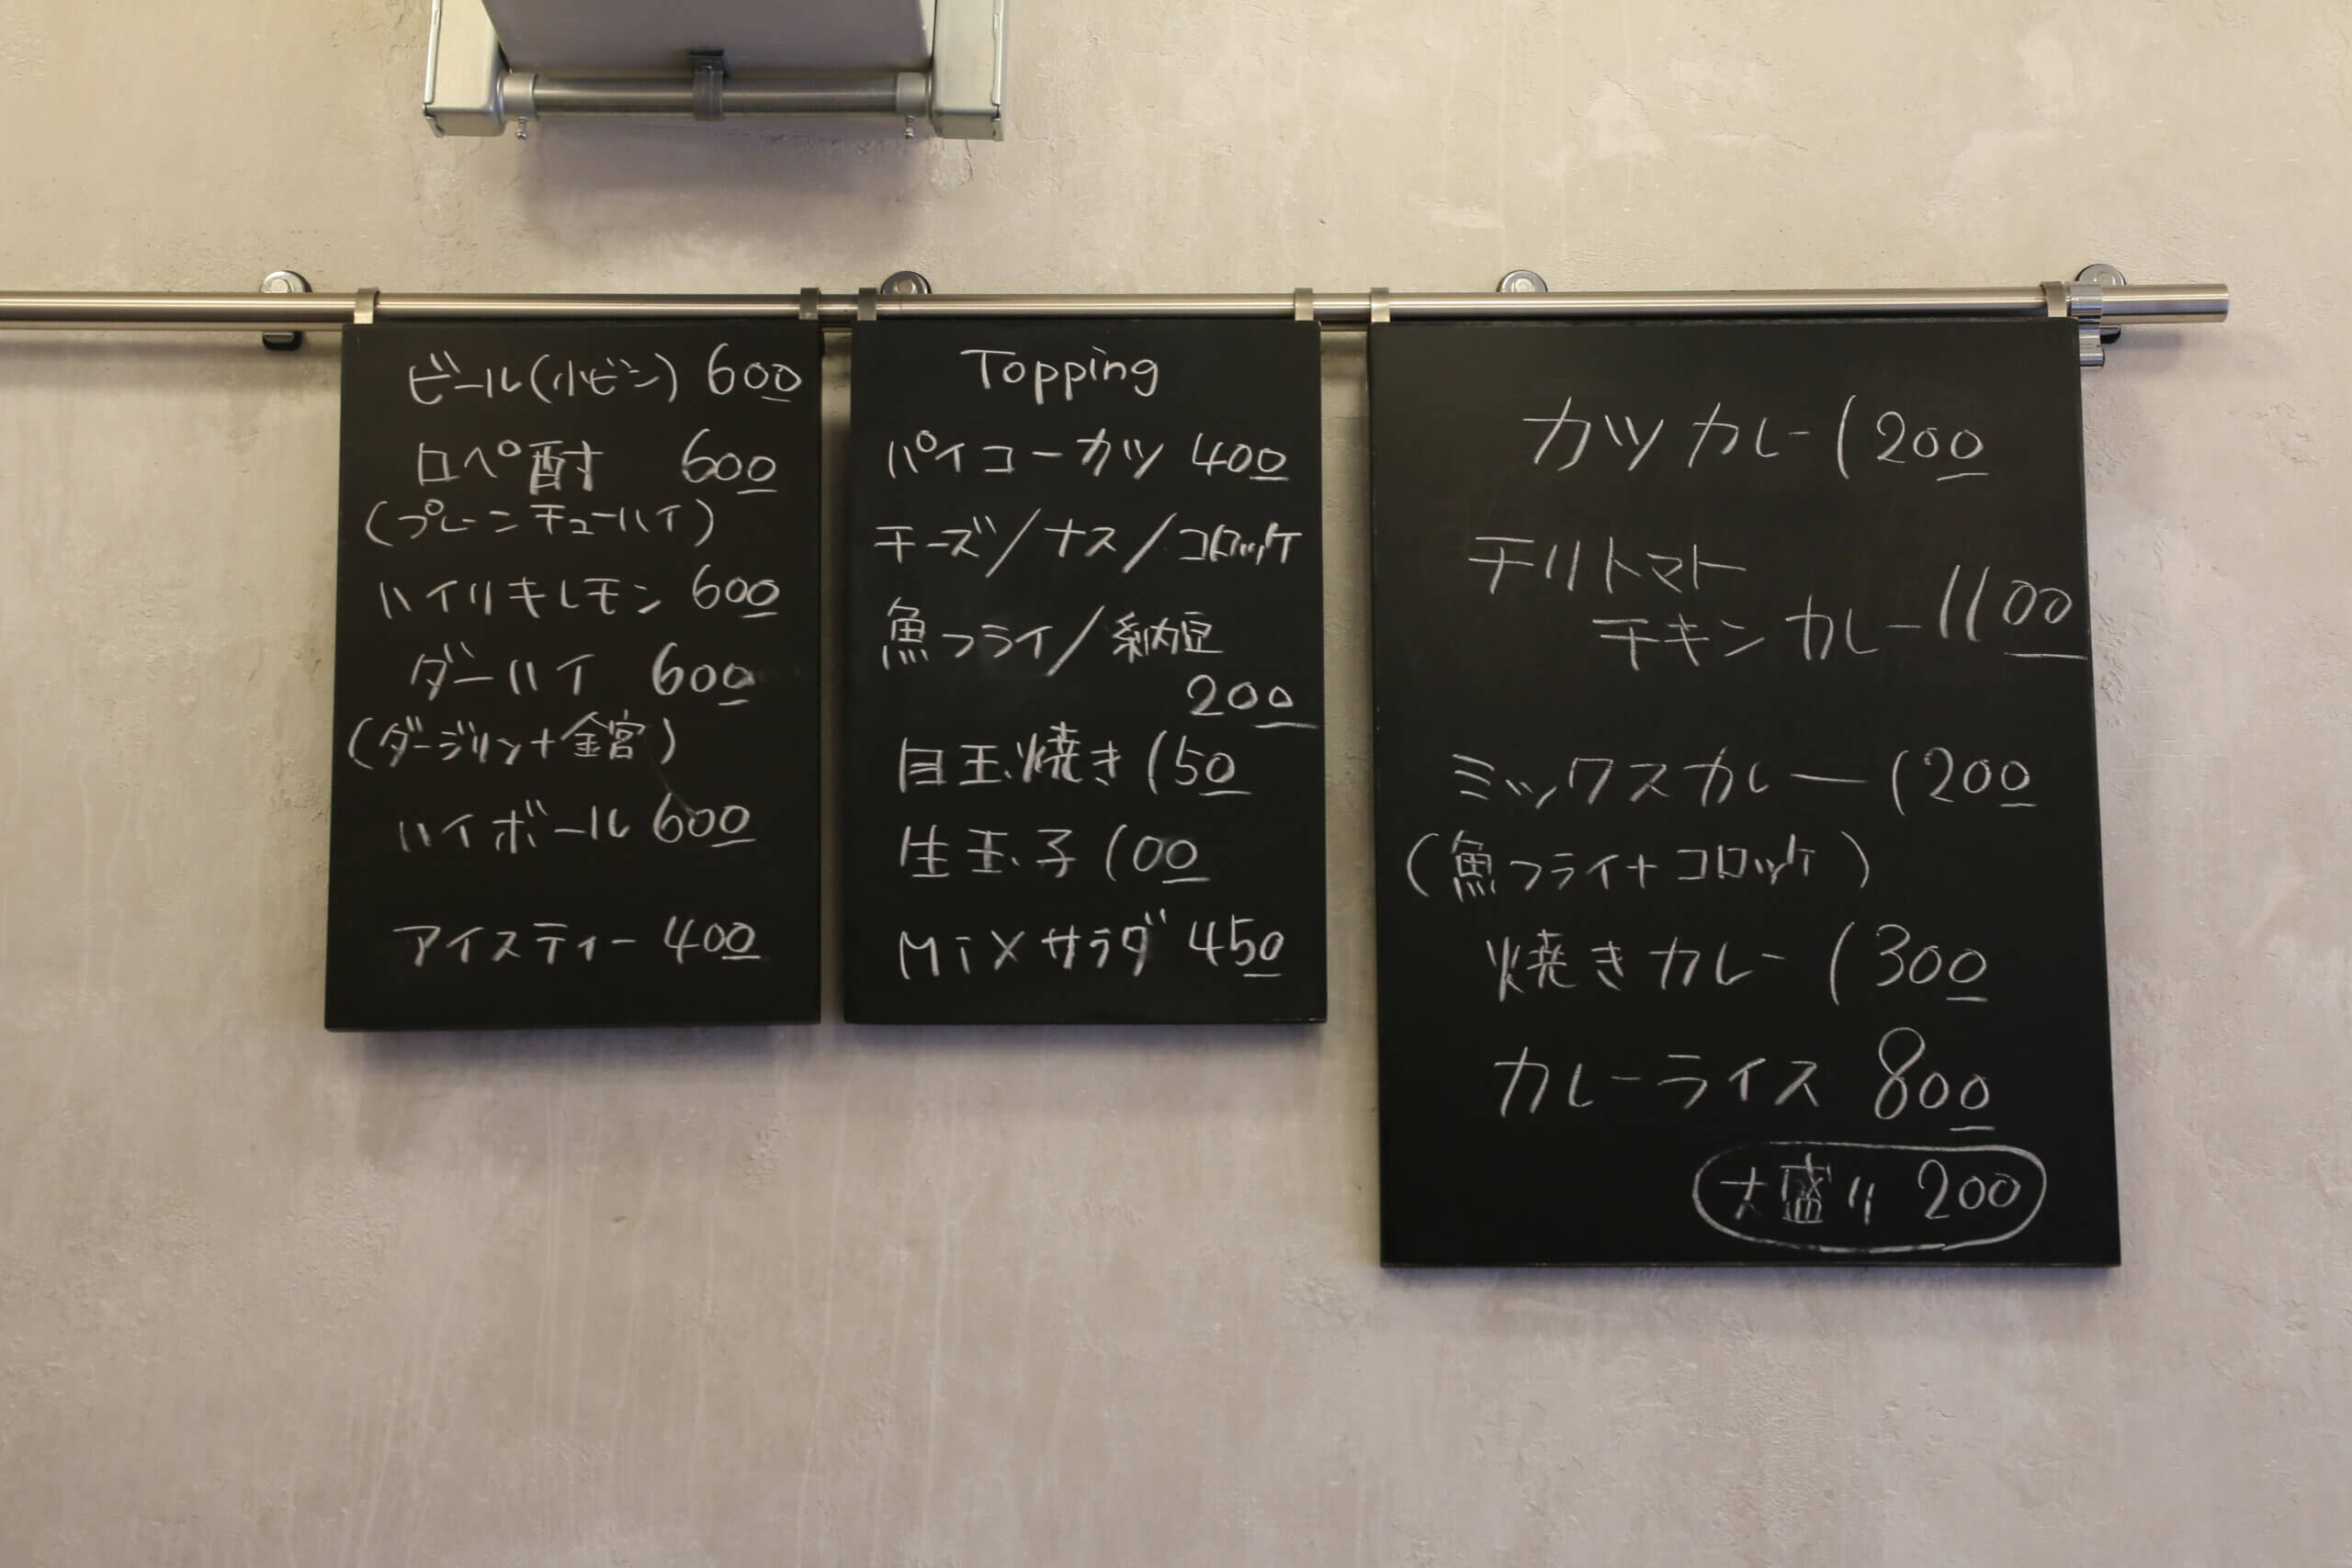 ビール(小ビン) 600
ロペ酎 600
(プレーンチューハイ)
ハイリキレモン 600
ダーハイ 600
(ダージリン+金宮)
ハイボール 600
アイスティー 400
Topping
パイコーカツ 400
チーズ/ナス/コロッケ
魚フライ/納豆
200
目玉焼き 150
生玉子 100
Mixサラダ 450
カツカレー 1200
チリトマト
チキンカレー 1100
ミックスカレー 1200
(魚フライ+コロッケ)
焼きカレー 1300
カレーライス 800
大盛り 200